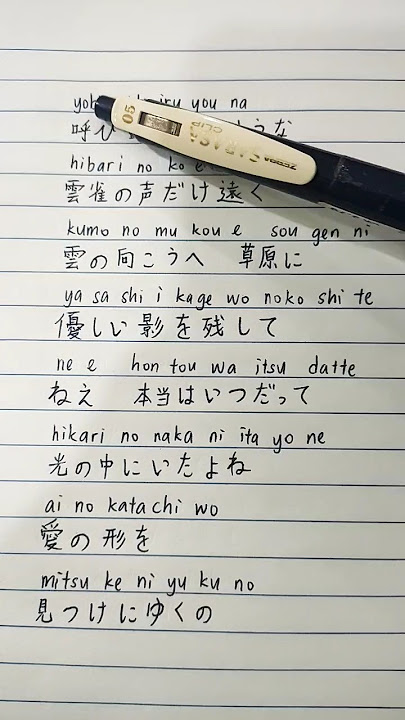 yob iru you na
呼び うな
hibari no ko e
雲雀の声だけ遠く
kumo no mu kou e sou gen ni
雲の向こうへ 草原に
ya sa shi i kage wo noko shi te
優しい影を残して
ne e hon tou wa itsu datte
ねえ 本当はいつだって
hikari no naka ni ita yo ne
光の中にいたよね
ai no katachi wo
愛の形を
mitsu ke ni yu ku no
見つけにゆくの
05
SARASA
CLIP
ZEBRA